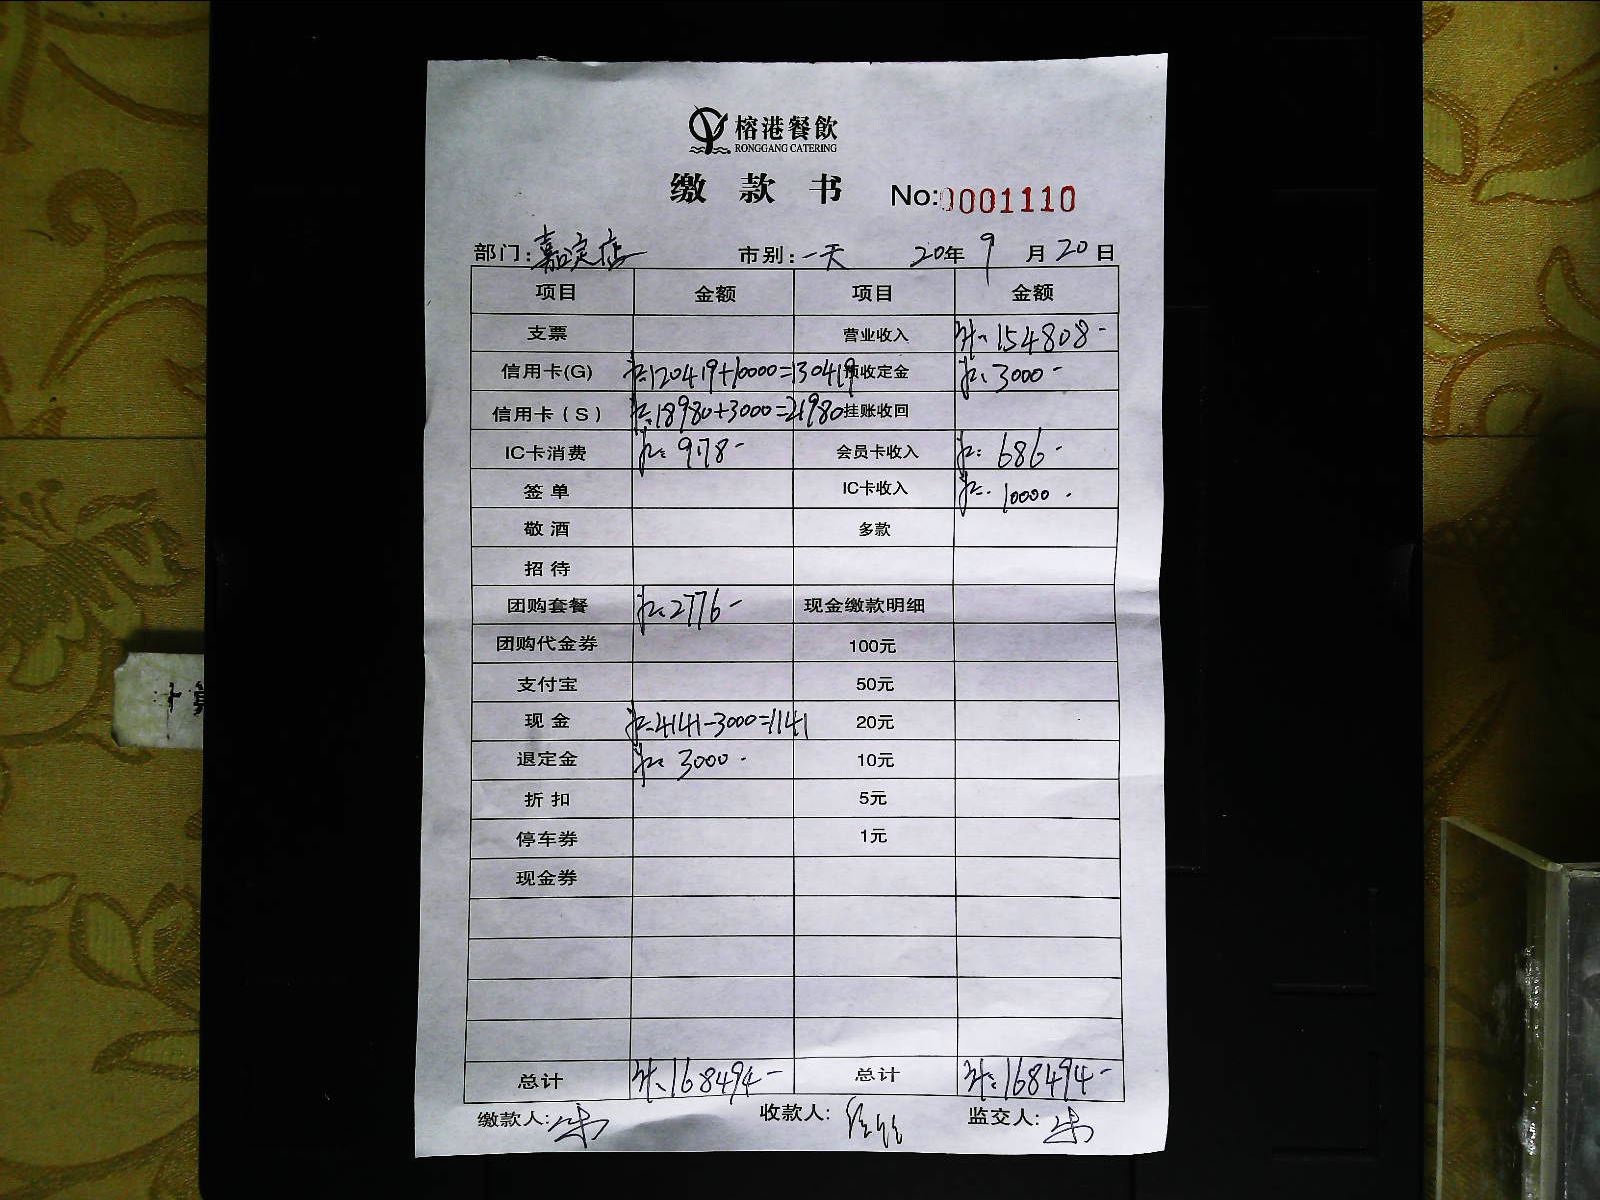 榕港餐飲
RONGGANG CATERING
缴款书 No:0001110
部门:嘉定店 市别:一天 20年9月20日
项目 金额 项目 金额
支票 营业收入 154808-
信用卡(G) 120419+10000=130419 预收定金 3000-
信用卡(S) 18980+3000=21980 挂账收回
IC卡消费 9178- 会员卡收入 686-
签单 IC卡收入 10000-
敬酒 多款
招待
团购套餐 2776- 现金缴款明细
团购代金券 100元
支付宝 50元
现金 4141-3000=1141 20元
退定金 3000- 10元
折扣 5元
停车券 1元
现金券
总计 168494- 总计 168494-
缴款人:朱 收款人: 监交人:朱